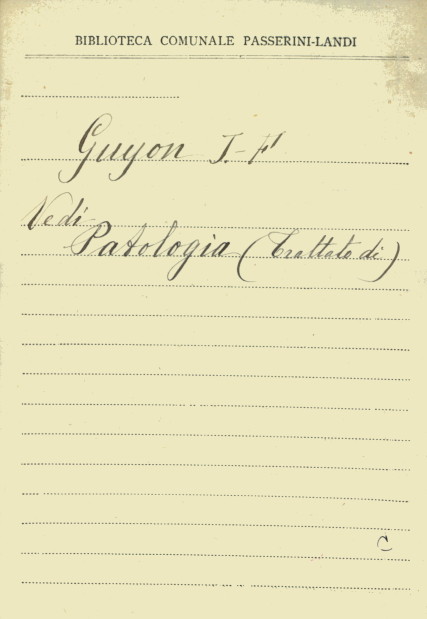 BIBLIOTECA COMUNALE PASSERINI-LANDI
Guyon J.-F.
Vedi
Patologia (Trattato di)
C